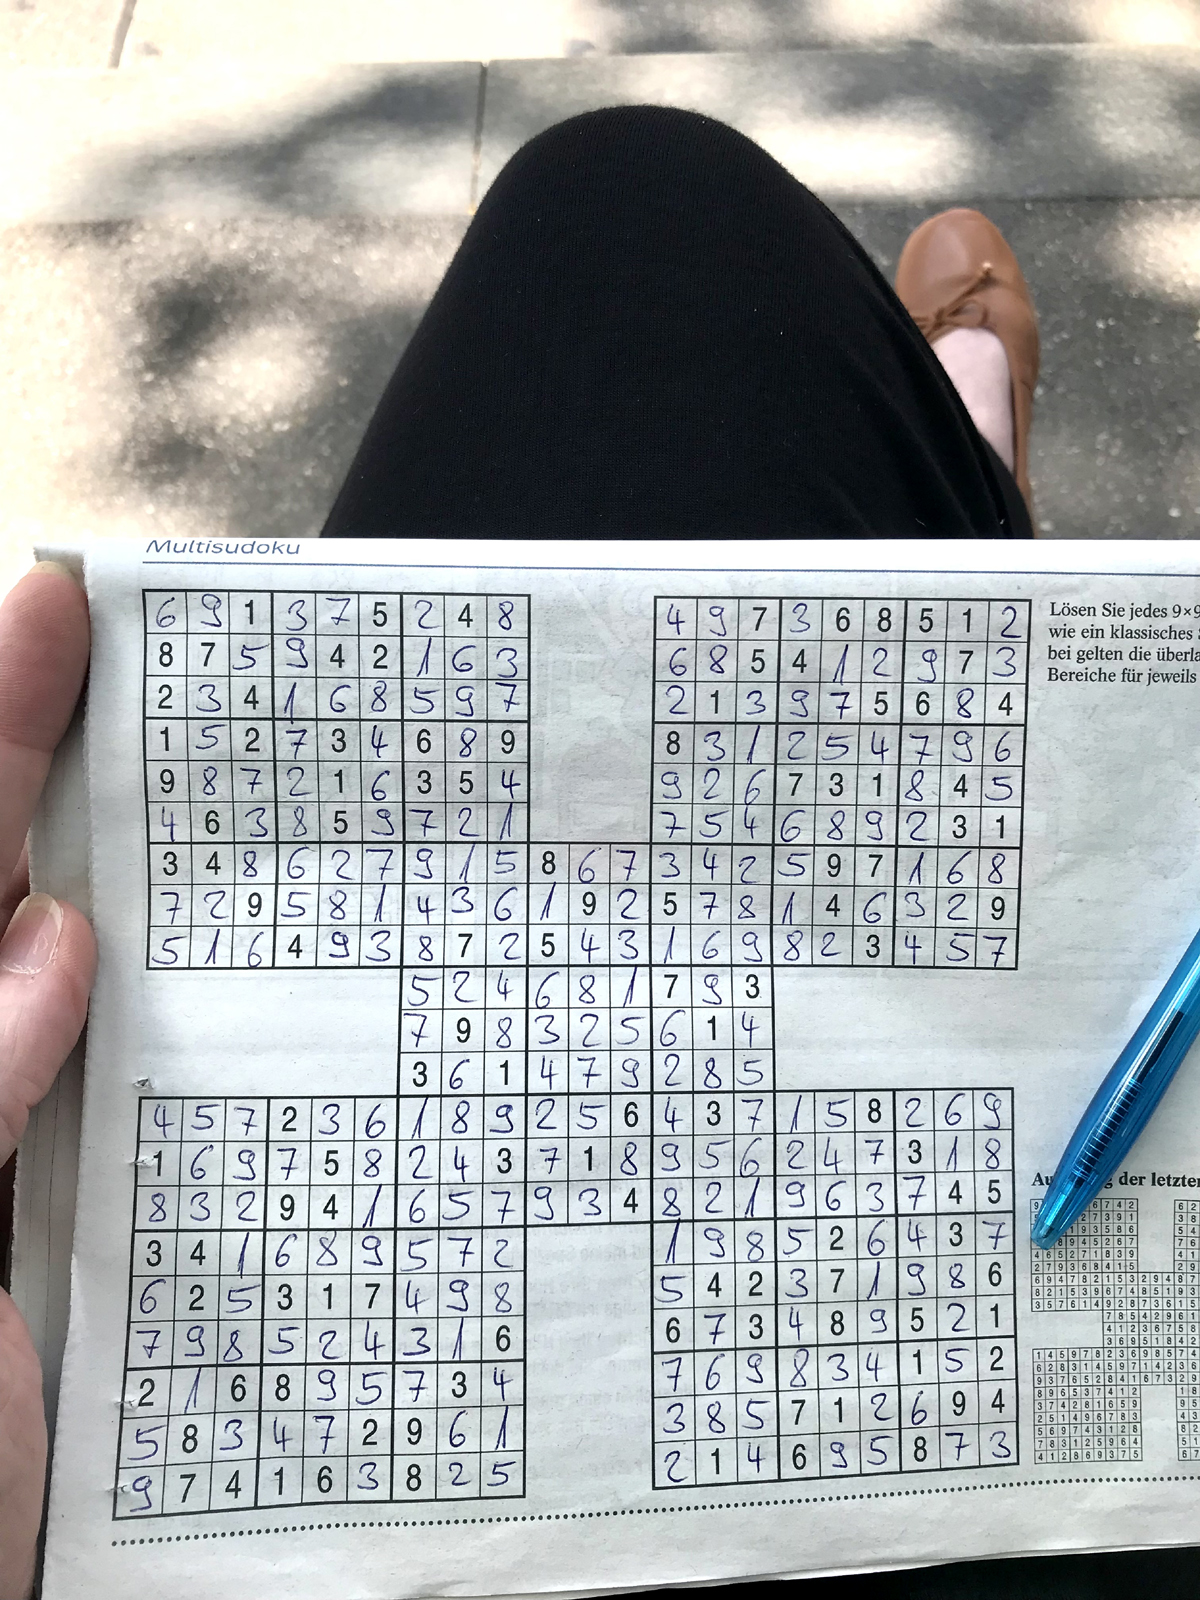 Multisudoku
6 9 1 3 7 5 2 4 8
8 7 5 9 4 2 1 6 3
2 3 4 1 6 8 5 9 7
1 5 2 7 3 4 6 8 9
9 8 7 2 1 6 3 5 4
4 6 3 8 5 9 7 2 1
4 9 7 3 6 8 5 1 2
6 8 5 4 1 2 9 7 3
2 1 3 9 7 5 6 8 4
8 3 1 2 5 4 7 9 6
9 2 6 7 3 1 8 4 5
7 5 4 6 8 9 2 3 1
3 4 8 6 2 7 9 1 5 8 6 7 3 4 2 5 9 7 1 6 8
7 2 9 5 8 1 4 3 6 1 9 2 5 7 8 1 4 6 3 2 9
5 1 6 4 9 3 8 7 2 5 4 3 1 6 9 8 2 3 4 5 7
5 2 4 6 8 1 7 9 3
7 9 8 3 2 5 6 1 4
3 6 1 4 7 9 2 8 5
4 5 7 2 3 6 1 8 9 2 5 6 4 3 7 1 5 8 2 6 9
1 6 9 7 5 8 2 4 3 7 1 8 9 5 6 2 4 7 3 1 8
8 3 2 9 4 1 6 5 7 9 3 4 8 2 1 9 6 3 7 4 5
3 4 1 6 8 9 5 7 2
6 2 5 3 1 7 4 9 8
7 9 8 5 2 4 3 1 6
2 1 6 8 9 5 7 3 4
5 8 3 4 7 2 9 6 1
9 7 4 1 6 3 8 2 5
1 9 8 5 2 6 4 3 7
5 4 2 3 7 1 9 8 6
6 7 3 4 8 9 5 2 1
7 6 9 8 3 4 1 5 2
3 8 5 7 1 2 6 9 4
2 1 4 6 9 5 8 7 3
Lösen Sie jedes 9×9
wie ein klassisches
bei gelten die überla
Bereiche für jeweils
Au g der letzter